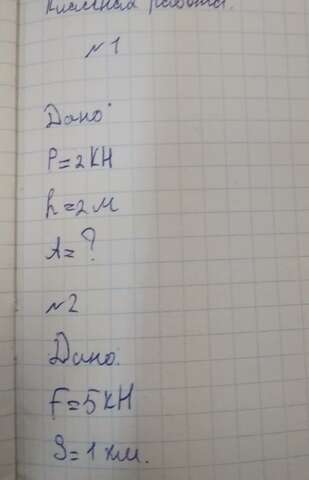 Классная работа.
№1
Дано:
P=2кН
h=2м
A=?
№2
Дано:
F=5кН
S=1км.